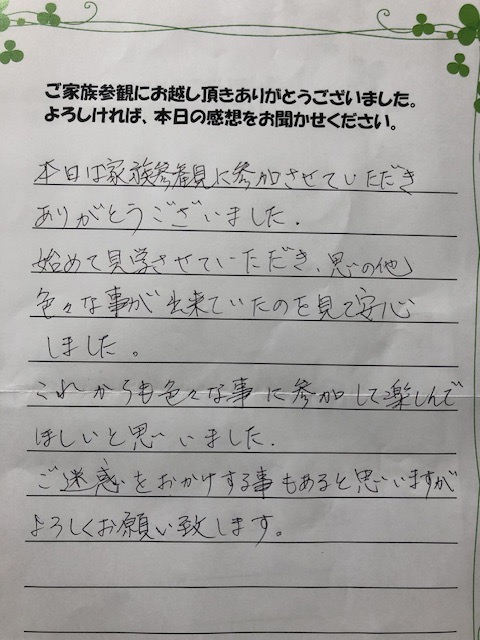 ご家族参観にお越し頂きありがとうございました。
よろしければ、本日の感想をお聞かせください。
本日は家族参観に参加させていただき
ありがとうございました.
始めて見学させていただき、思の他
色々な事が出来ていたのを見て安心
しました。
これからも色々な事に参加して楽しんで
ほしいと思いました.
ご迷惑をおかけする事もあると思いますが
よろしくお願い致します。